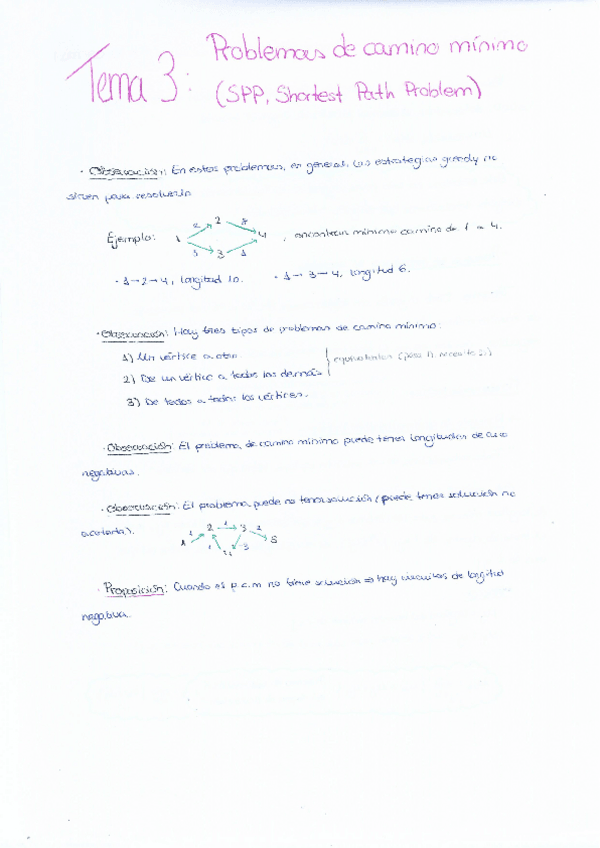 Tema 3: Problemas de camino mínimo
(SPP, Shortest Path Problem)
· Observación: En estos problemas, en general, las estrategias greedy no
sirven para resolverlo.
Ejemplo: 1 2 3 4 2 8 5 1 , encontrar mínimo camino de 1 a 4.
· 1→2→4, longitud 10. · 1→3→4, longitud 6.
· Observación: Hay tres tipos de problemas de camino mínimo:
1) Un vértice a otro.
2) De un vértice a todos los demás
equivalentes (para 1) necesito 2))
3) De todos a todos los vértices.
· Observación: El problema de camino mínimo puede tener longitudes de arco
negativas.
· Observación: El problema puede no tener solución (puede tener solución no
acotada).
1 2 3 5
· Proposición: Cuando el p.c.m no tiene solución ⇒ hay circuitos de longitud
negativa.